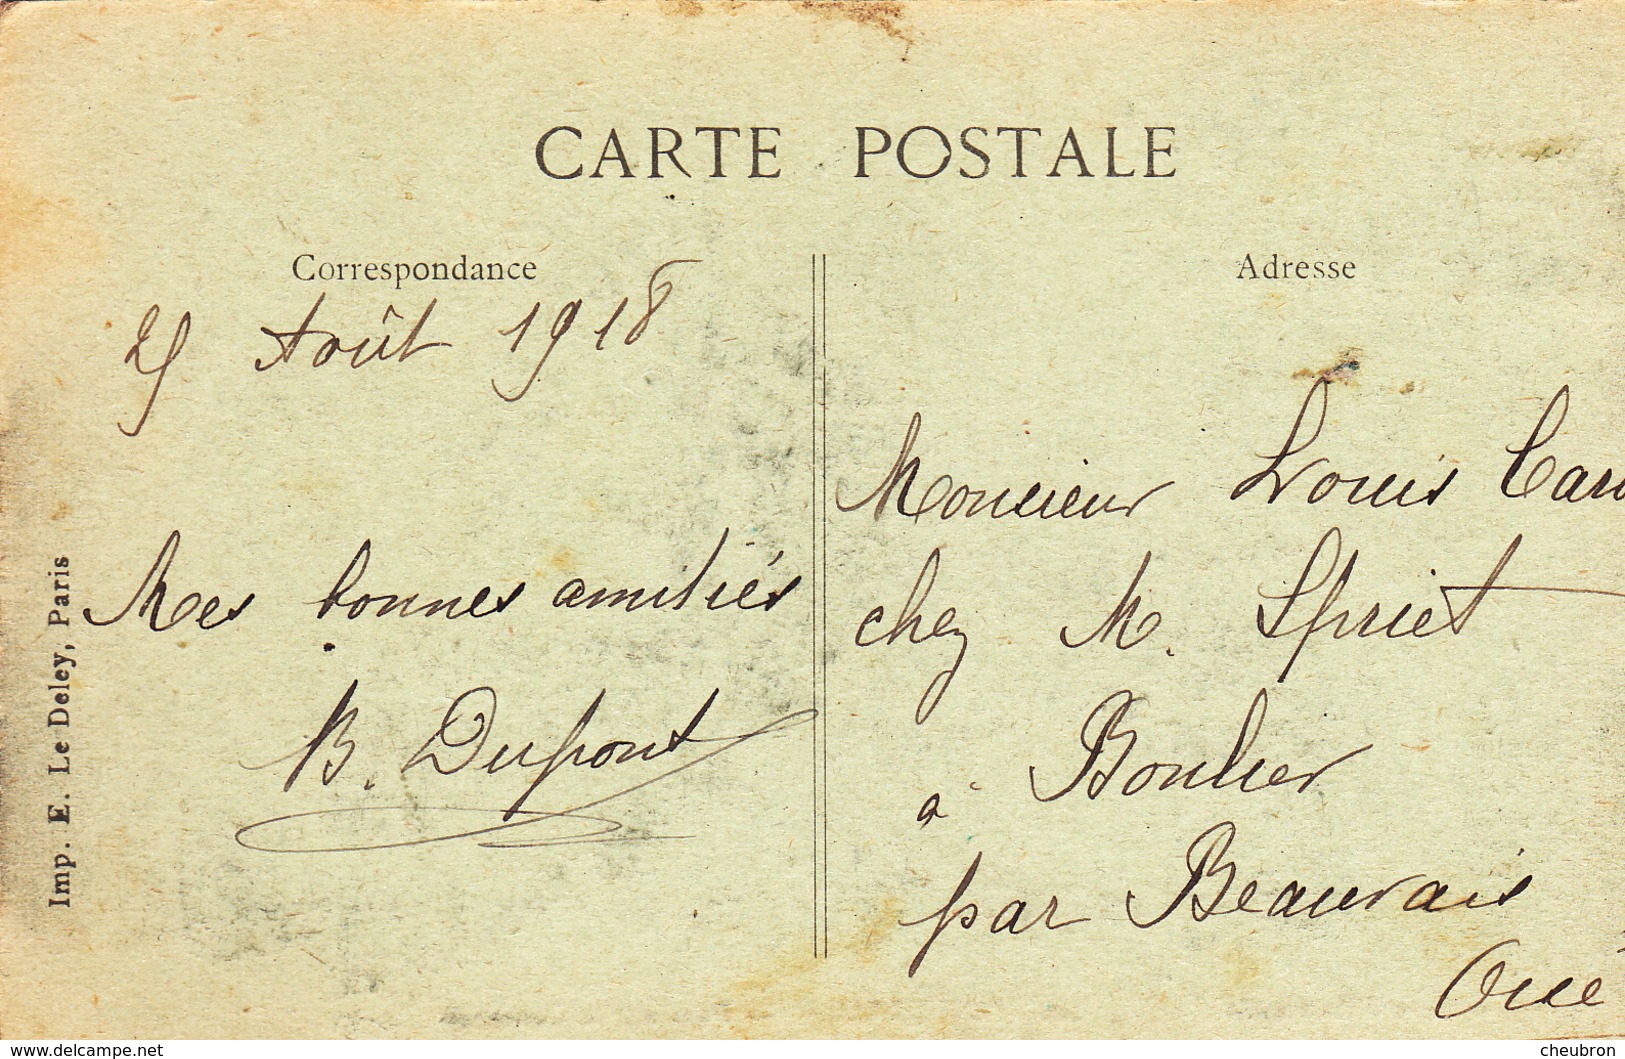 CARTE POSTALE
Correspondance
Adresse
Août 1918
Mes bonnes amitiés
B. Dupont
Monsieur Louis
chez M. Spriet
à Boulier
par Beauvais
Oise
Imp. E. Le Deley, Paris
www.delcampe.net
cheubron